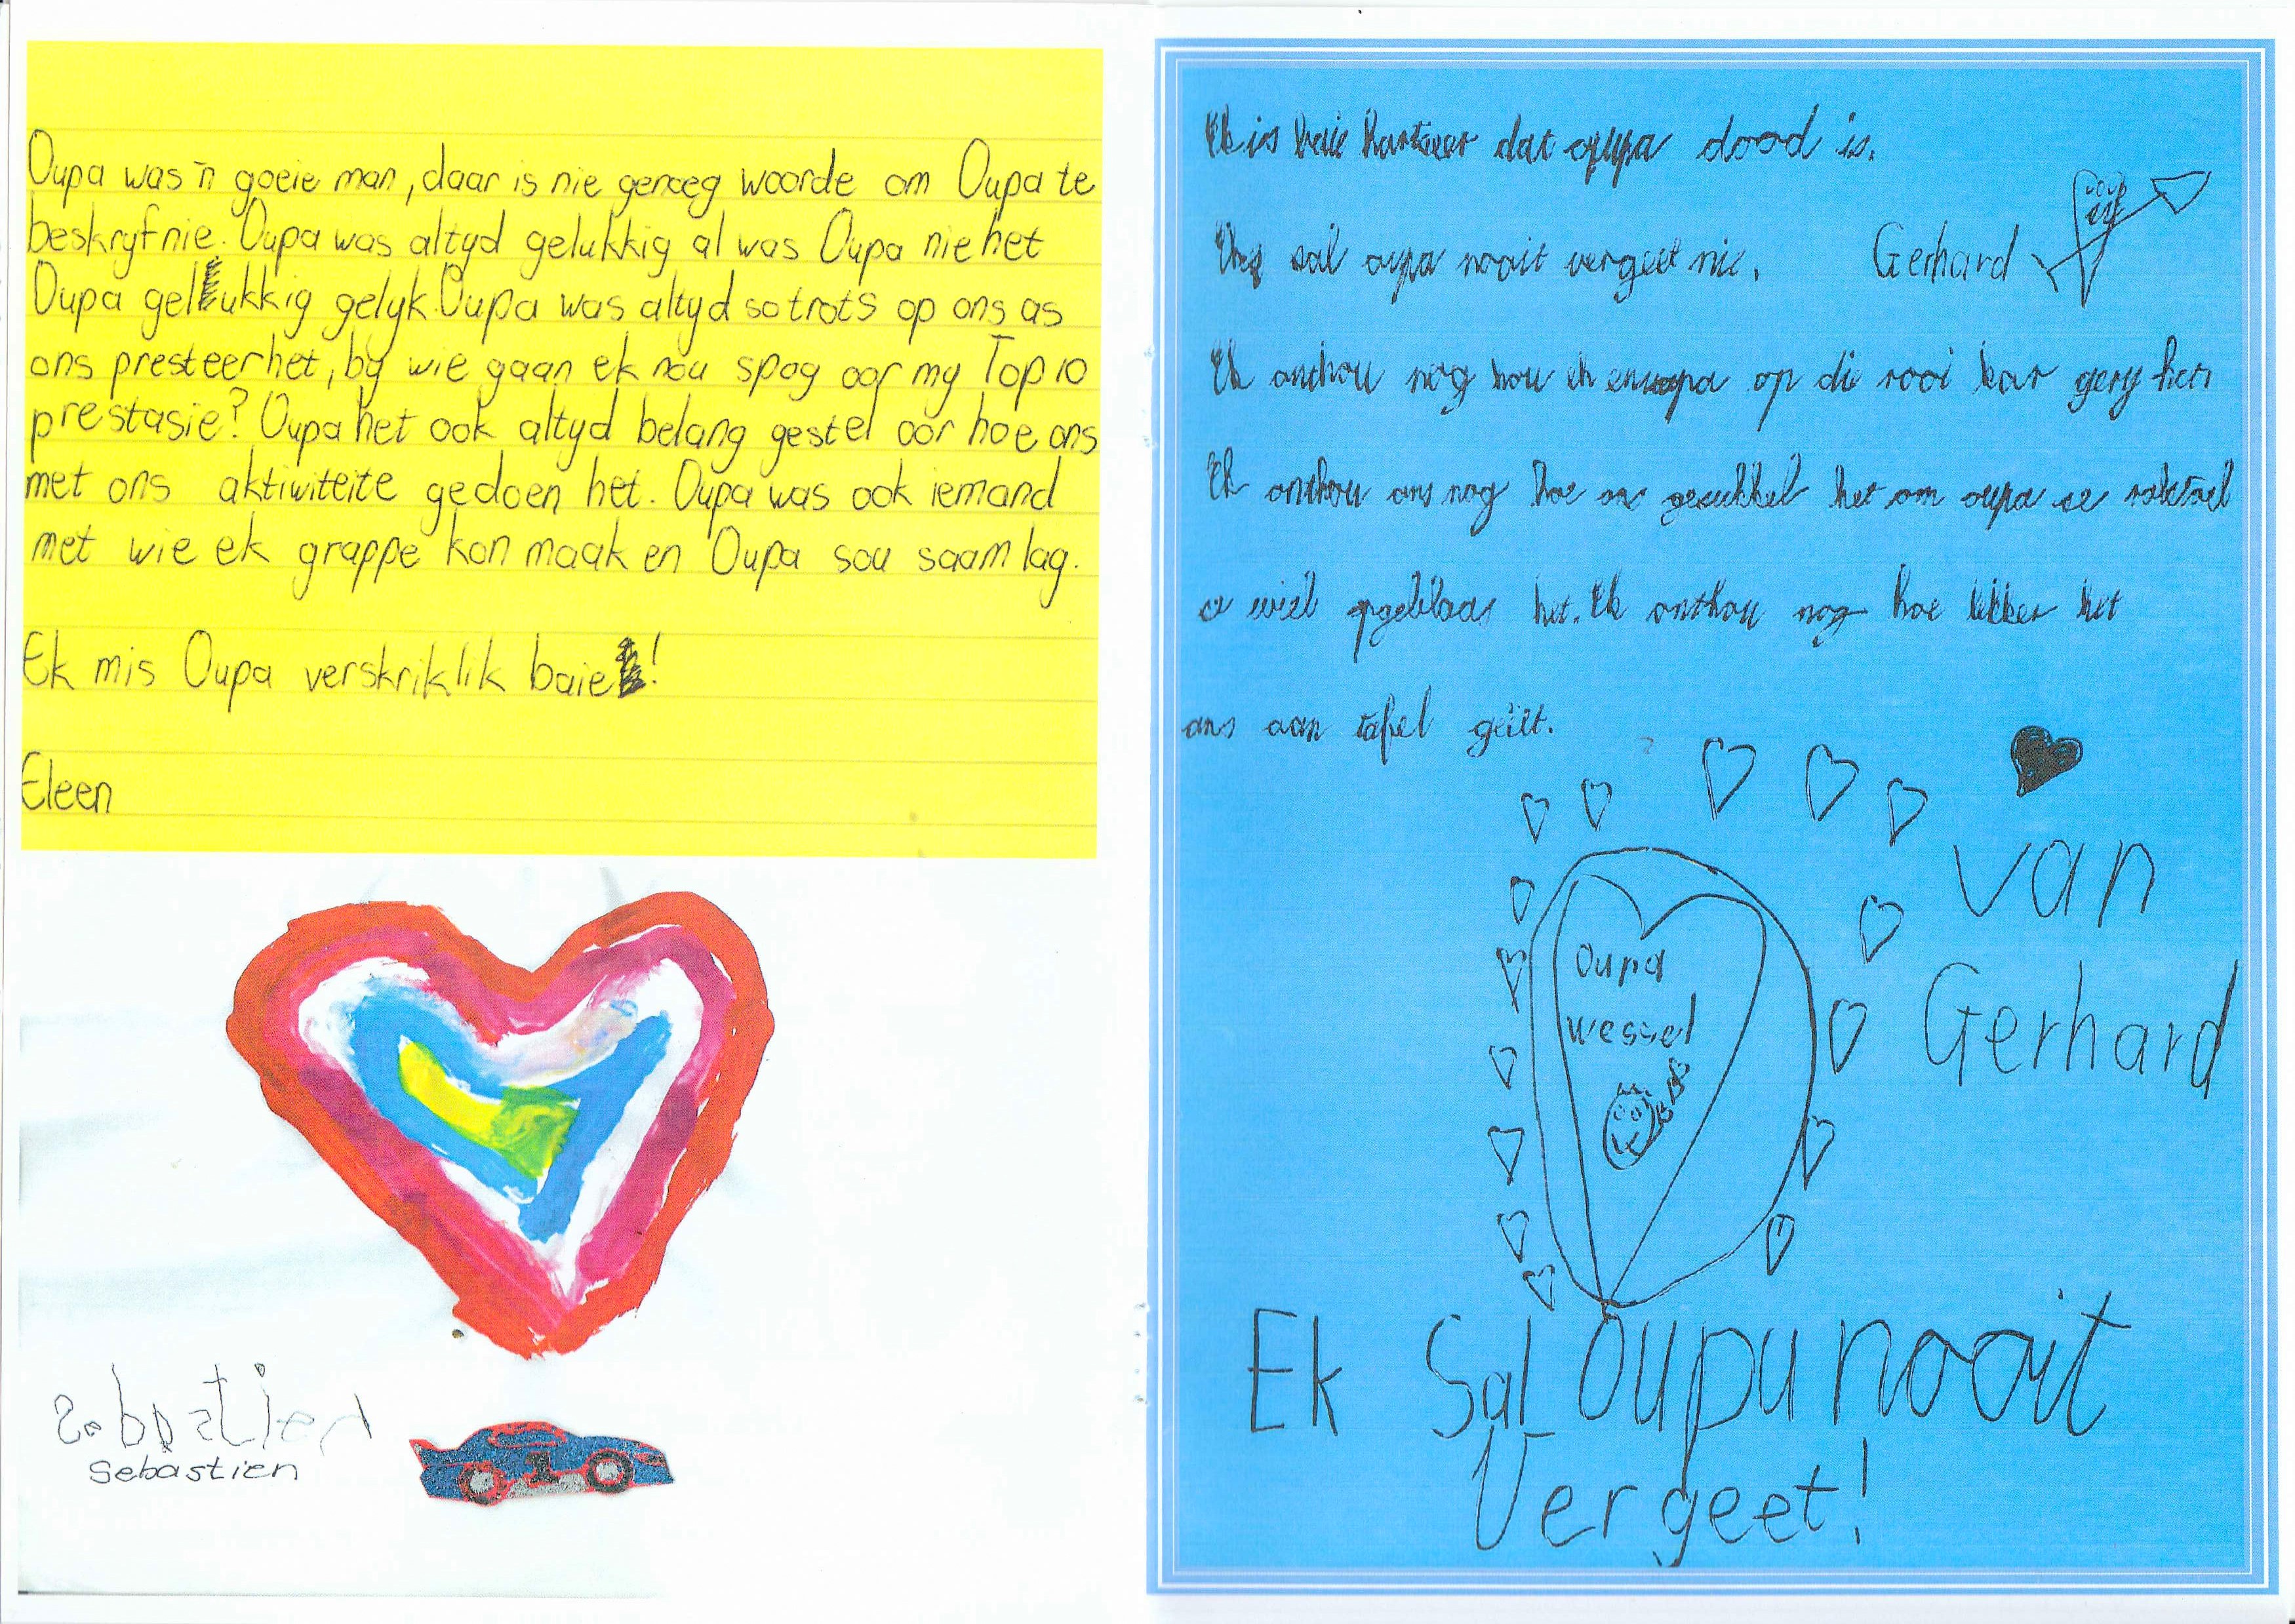 Oupa was 'n goeie man, daar is nie genoeg woorde om Oupa te
beskryf nie. Oupa was altyd gelukkig al was Oupa nie het
Oupa gelukkig gelyk. Oupa was altyd so trots op ons as
ons presteer het, by wie gaan ek nou spog oor my Top 10
prestasie? Oupa het ook altyd belang gestel oor hoe ons
met ons aktiwiteite gedoen het. Oupa was ook iemand
met wie ek grappe kon maak en Oupa sou saam lag.
Ek mis Oupa verskriklik baie!
Eleen
Sebastien
Sebastien
Ek is baie hartseer dat oupa dood is.
Ek sal oupa nooit vergeet nie.
Gerhard
Ek onthou nog hou ek en oupa op die rooi kar gery het
Ek onthou ons nog hoe ons gesukkel het om oupa se
se wiel opgeblaas het. Ek onthou nog hoe lekker het
ons aan tafel geëet.
van
Gerhard
Oupa
wessel
Ek Sal Oupa nooit
Vergeet!